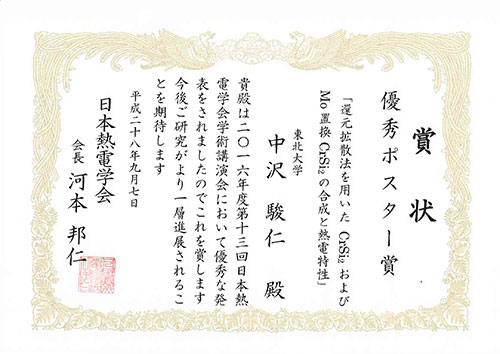 賞状
優秀ポスター賞
「還元拡散法を用いた CrSi2 および
Mo 置換 CrSi2 の合成と熱電特性」
東北大学
中沢 駿仁 殿
貴殿は二〇一六年度第十三回日本熱
電学会学術講演会において優秀な発
表をされましたのでこれを賞します
今後ご研究がより一層進展されるこ
とを期待します
平成二十八年九月七日
日本熱電学会
会長 河本 邦仁